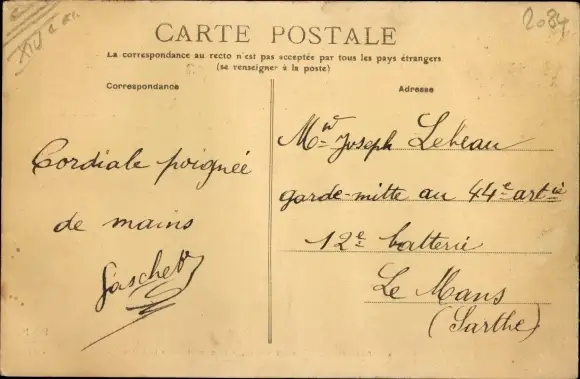 CARTE POSTALE
La correspondance au recto n'est pas acceptée par tous les pays étrangers
(se renseigner à la poste)
Correspondance
Adresse
Cordiale poignée
de mains
Gaschet
Mr Joseph Lebeau
garde-mitte au 44e artie
12e batterie
Le Mans
(Sarthe)